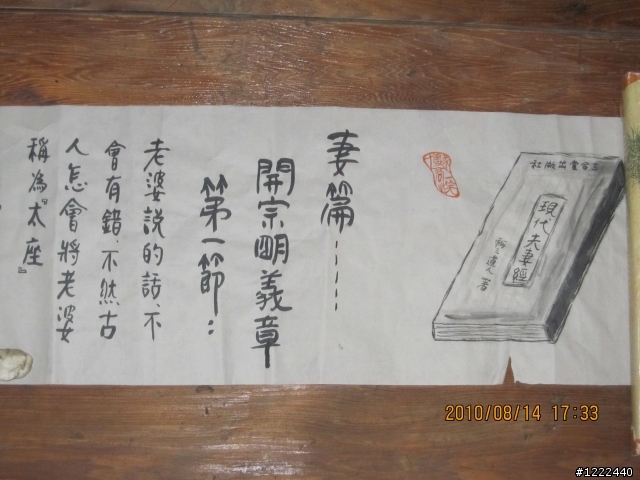 現代夫妻經
博君一笑
妻篇……
開宗明義章
第一節：
老婆說的話、不
會有錯、不然古
人怎會將老婆
稱為『太座』
2010/08/14 17:33
#1222440